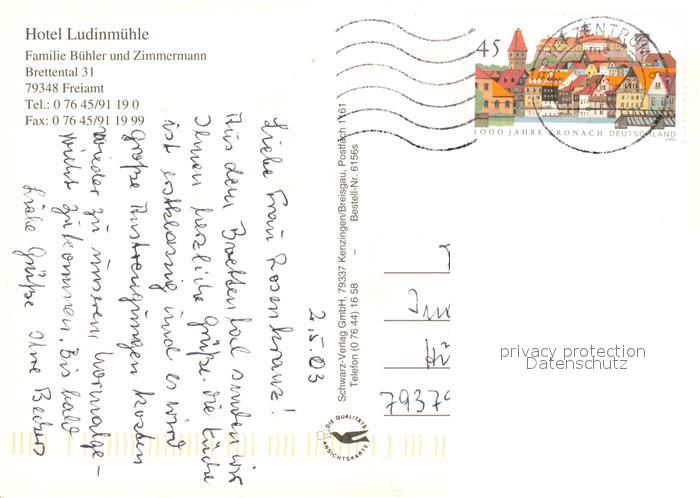 Hotel Ludinmühle
Familie Bühler und Zimmermann
Brettental 31
79348 Freiamt
Tel.: 0 76 45/91 19 0
Fax: 0 76 45/91 19 99
2.5.03
Liebe Frau Rosenkranz!
Aus dem Brettental senden wir
Ihnen herzliche Grüße. Die Küche
ist erstklassig und es wird
große Anstrengungen kosten
wieder zu unserem Normalge-
wicht zu kommen. Bis bald
Liebe Grüße Ihre
Schwarz-Verlag GmbH, 79337 Kenzingen/Breisgau, Postfach 1161
Telefon (0 76 44) 16 58 – Bestell-Nr. 6156s
DIE QUALITÄTS
ANSICHTSKARTE
45
1000 JAHRE KRONACH DEUTSCHLAND
7937
privacy protection
Datenschutz